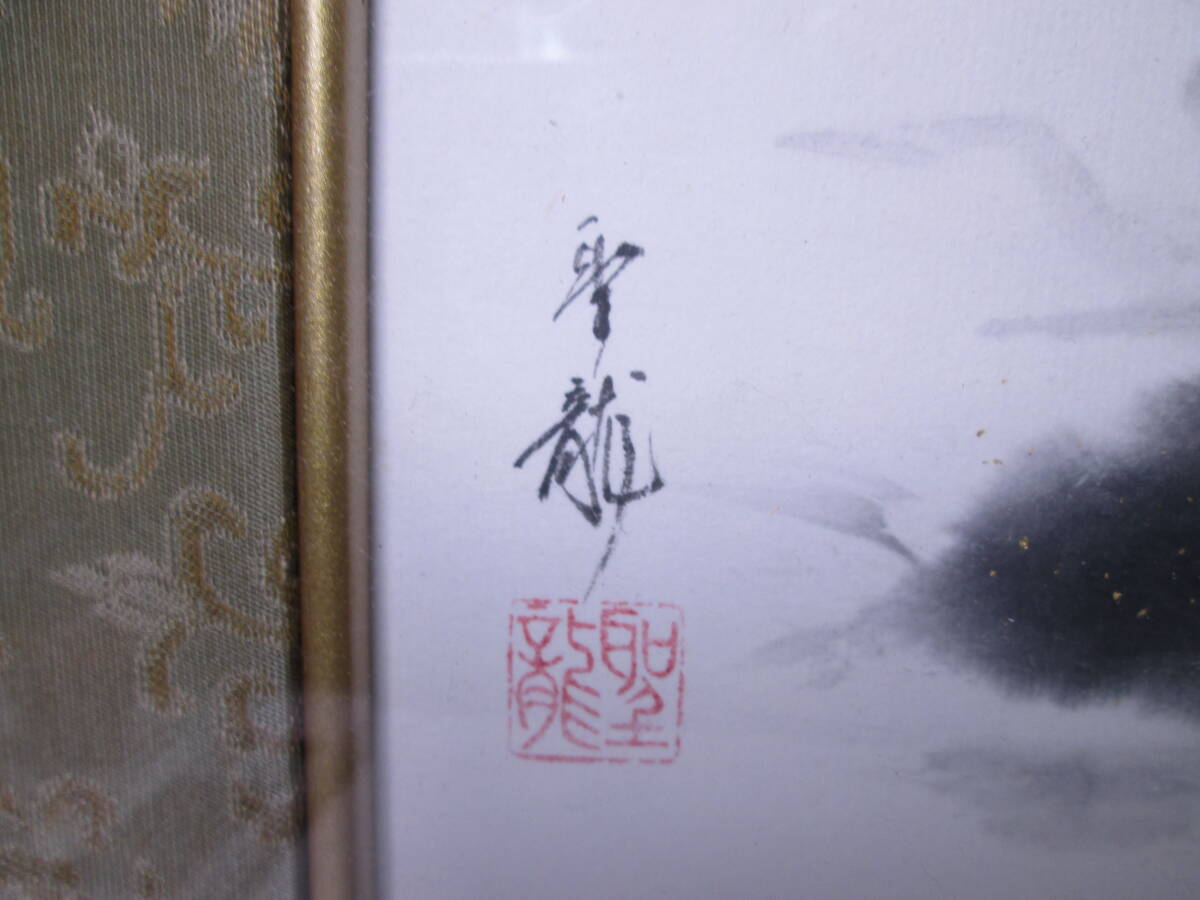 聖龍
聖龍